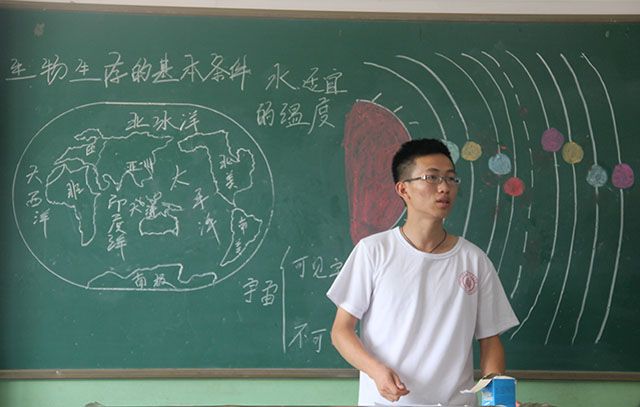 生物生存的基本条件 水、适宜
的温度
北冰洋
大西洋
非
亚洲
印度洋
太平洋
北美
南美
南极
宇宙
可见宇
不可